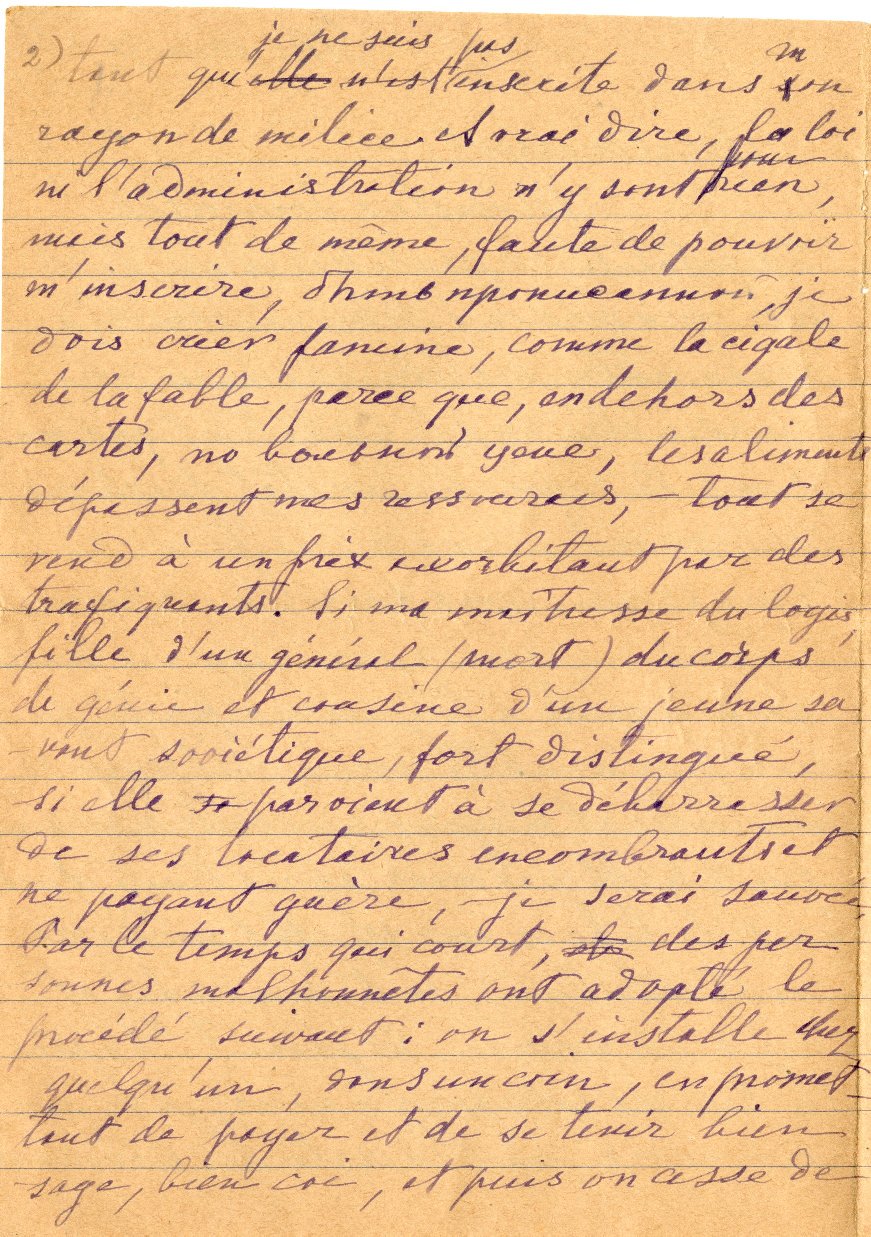 je ne suis pas
2) tant qu'elle n'est inscrite dans mon
rayon de milice. A vrai dire, la loi
ni l'administration n'y sont pour rien,
mais tout de même, faute de pouvoir
m'inscrire, je
dois crier famine, comme la cigale
de la fable, parce que, en dehors des
cartes, по вольной цене, les aliments
dépassent mes ressources, – tout se
vend à un prix exorbitant par des
trafiquants. Si ma maîtresse du logis,
fille d'un général (mort) du corps
de génie et cousine d'un jeune sa
-vant soviétique, fort distingué,
si elle parvient à se débarrasser
de ses locataires encombrants et
ne payant guère, – je serai sauvée.
Par le temps qui court, des per
sonnes malhonnêtes ont adopté le
procédé suivant : on s'installe chez
quelqu'un, dans un coin, en promet-
tant de payer et de se tenir bien
sage, bien coi, et puis on cesse de